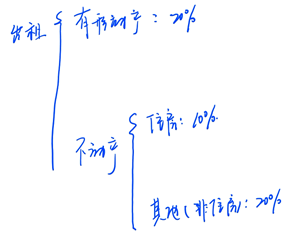 出租
有形动产：20%
不动产
住房：10%
其他(非住房)：20%